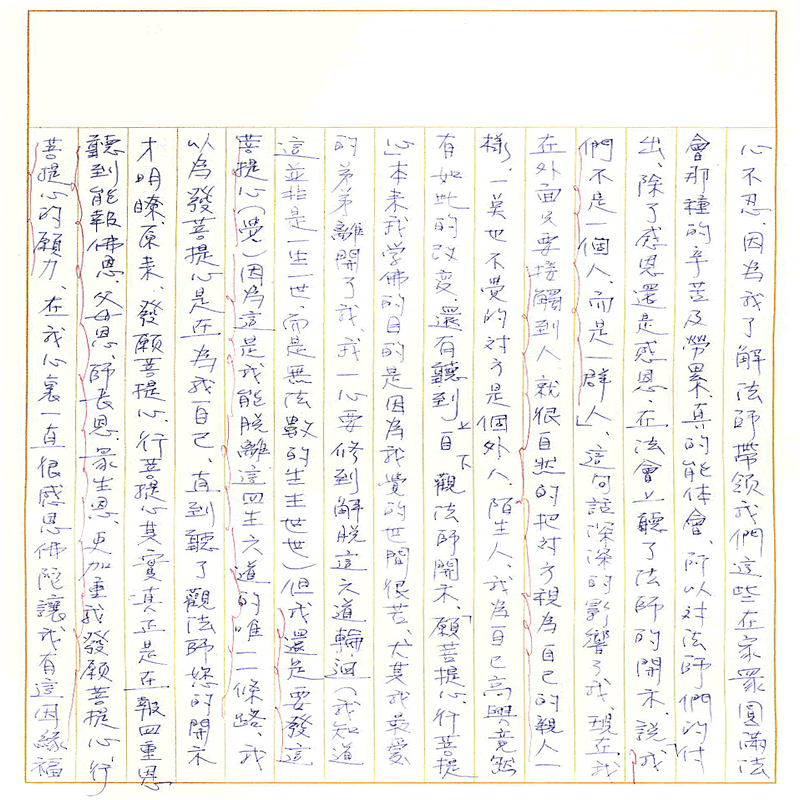 心不忍、因為我了解法師帶領我們這些在家眾圓滿法
會那種的辛苦及勞累、真的能体會、所以对法師們的付
出、除了感恩還是感恩、在法會上聽了法師的開示、說「我
們不是一個人、而是一群人」、這句話深深的影響了我、現在我
在外面只要接觸到人就很自然的把対方視為自己的親人一
樣、一奌也不覺的対方是個外人、陌生人、我為自己高興竟然
有如此的改変、還有聽到上日下觀法師開示、「願菩提心、行菩提
心」本來我学佛的目的是因為我覺的世間很苦、尤其我最愛
的弟弟離開了我、我一心要修到解脫這六道輪迴(我知道
這並指是一生一世、而是無法數的生生世世)但我還是要發這
菩提心(覺、)因為這是我能脫離這四生六道的唯一一條路、我
以為發菩提心是在為我自己、直到聽了觀法師您的開示
才明瞭、原來、發願菩提心、行菩提心其實真正是在報四重恩
聽到能報佛恩、父母恩、師長恩、眾生恩、更加重我發願菩提心、行
菩提心的願力、在我心裏一直很感恩佛陀讓我有這因緣福